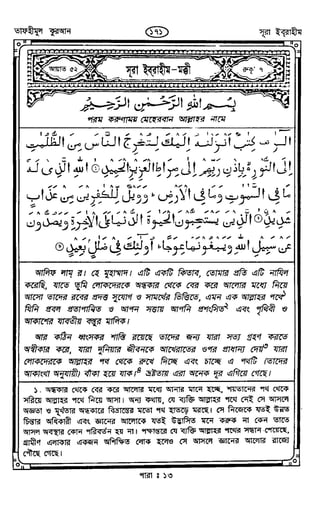 তাফহীমুল কুরআন
১৭১
সূরা ইবরাহীম
আয়াত ৫২
সূরা ইবরাহীম-মক্কী
রুকূ' ৭
بِسْمِ اللهِ الرَّحْمٰنِ الرَّحِيْمِ
পরম করুণাময় মেহেরবান আল্লাহর নামে
الٓرٰ ۚ كِتٰبٌ اَنْزَلْنٰهُ اِلَيْكَ لِتُخْرِجَ النَّاسَ مِنَ الظُّلُمٰتِ
اِلَى النُّوْرِ ۙ بِاِذْنِ رَبِّهِمْ اِلٰى صِرَاطِ الْعَزِيْزِ الْحَمِيْدِ ۝ اللهِ الَّذِىْ لَهٗ
مَا فِى السَّمٰوٰتِ وَمَا فِى الْاَرْضِ ؕ وَوَيْلٌ لِّلْكٰفِرِيْنَ مِنْ عَذَابٍ
شَدِيْدٍ ۝ الَّذِيْنَ يَسْتَحِبُّوْنَ الْحَيٰوةَ الدُّنْيَا عَلَى الْاٰخِرَةِ وَيَصُدُّوْنَ
عَنْ سَبِيْلِ اللهِ وَيَبْغُوْنَهَا عِوَجًا ؕ اُولٰٓئِكَ فِىْ ضَلٰلٍۭ بَعِيْدٍ ۝
আলিফ লাম্ র। হে মুহাম্মাদ! এটি একটি কিতাব, তোমার প্রতি এটি নাযিল
করেছি, যাতে তুমি লোকদেরকে অন্ধকার থেকে বের করে আলোর মধ্যে নিয়ে
আসো তাদের রবের প্রদত্ত সুযোগ ও সামর্থের ভিত্তিতে, এমন এক আল্লাহর পথে১
যিনি প্রবল প্রতাপান্বিত ও আপন সত্তায় আপনি প্রশংসিত২ এবং পৃথিবী ও
আকাশের যাবতীয় বস্তুর মালিক।
আর কঠিন ধ্বংসকর শাস্তি রয়েছে তাদের জন্য যারা সত্য গ্রহণ করতে
অস্বীকার করে, যারা দুনিয়ার জীবনকে আখেরাতের ওপর প্রাধান্য দেয়৩ যারা
লোকদেরকে আল্লাহর পথ থেকে রুখে দিচ্ছে এবং চাচ্ছে এ পথটি (তাদের
আকাংখা অনুযায়ী) বাঁকা হয়ে যাক।৪ ভ্রষ্টতায় এরা অনেক দূর এগিয়ে গেছে।
১. অন্ধকার থেকে বের করে আলোর মধ্যে আনার মানে হচ্ছে, শয়তানের পথ থেকে
সরিয়ে আল্লাহর পথে নিয়ে আসা। অন্য কথায়, যে ব্যক্তি আল্লাহর পথে নেই সে আসলে
অজ্ঞতা ও মূর্খতার অন্ধকারে বিভ্রান্তের মতো পথ হাতড়ে মরছে। সে নিজেকে যতই উন্নত
চিন্তার অধিকারী এবং জ্ঞানের আলোকে যতই উদ্ভাসিত মনে করুক না কেন তাতে
আসল অবস্থার কোন পরিবর্তন হয় না। পক্ষান্তরে যে ব্যক্তি আল্লাহর পথের সন্ধান পেয়েছে,
গ্রামীণ এলাকার একজন অশিক্ষিত লোক হলেও সে আসলে জ্ঞানের আলোর রাজ্যে
পৌঁছে গেছে।
পারা : ১৩